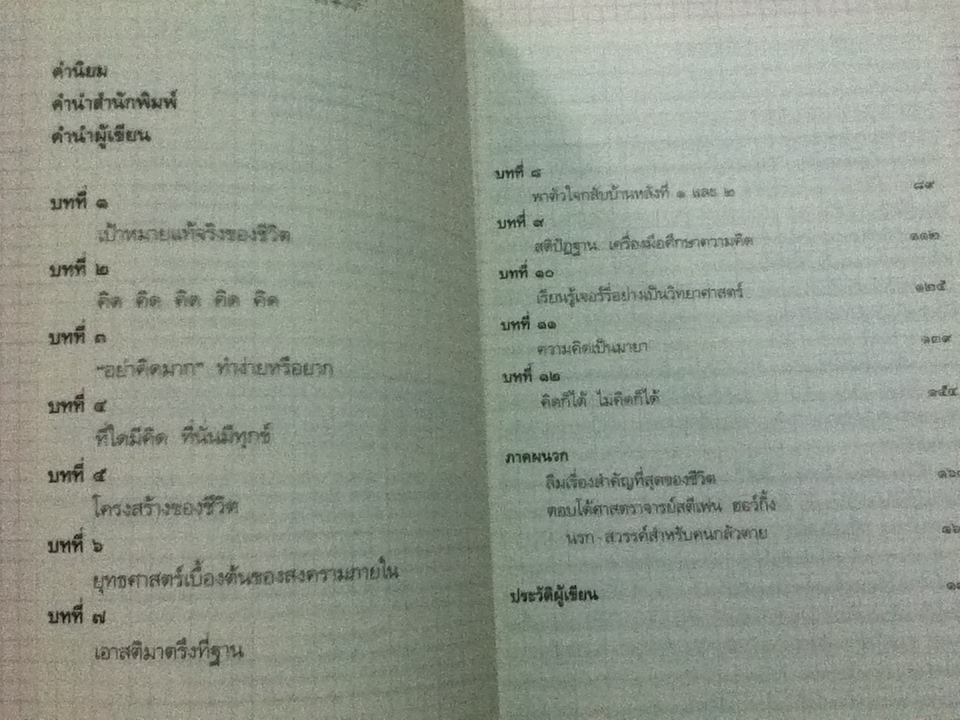 คำนิยม
คำนำสำนักพิมพ์
คำนำผู้เขียน
บทที่ ๑
เป้าหมายแท้จริงของชีวิต
บทที่ ๒
คิด คิด คิด คิด คิด
บทที่ ๓
"อย่าคิดมาก" ทำง่ายหรือยาก
บทที่ ๔
ที่ใดมีคิด ที่นั่นมีทุกข์
บทที่ ๕
โครงสร้างของชีวิต
บทที่ ๖
ยุทธศาสตร์เบื้องต้นของสงครามภายใน
บทที่ ๗
เอาสติมาตรึงที่ฐาน
บทที่ ๘
พาตัวใจกลับบ้านหลังที่ ๑ และ ๒ ๘๙
บทที่ ๙
สติปัฏฐาน เครื่องมือศึกษาความคิด ๑๑๒
บทที่ ๑๐
เรียนรู้เจอร์รี่อย่างเป็นวิทยาศาสตร์ ๑๒๕
บทที่ ๑๑
ความคิดเป็นมายา ๑๓๙
บทที่ ๑๒
คิดก็ได้ ไม่คิดก็ได้ ๑๕๔
ภาคผนวก
ลืมเรื่องสำคัญที่สุดของชีวิต
ตอบโต้ศาสตราจารย์สตีเฟน ฮอว์กิ้ง
นรก-สวรรค์สำหรับคนกลัวตาย
ประวัติผู้เขียน